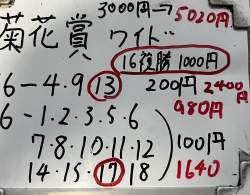 3000円→5020円
菊花賞 ワイド
16複勝1000円
6-4・9⑬ 200円 2400円
6-1・2・3・5・6 980円
7・8・10・11・12 100円
14・15⑰18 1640